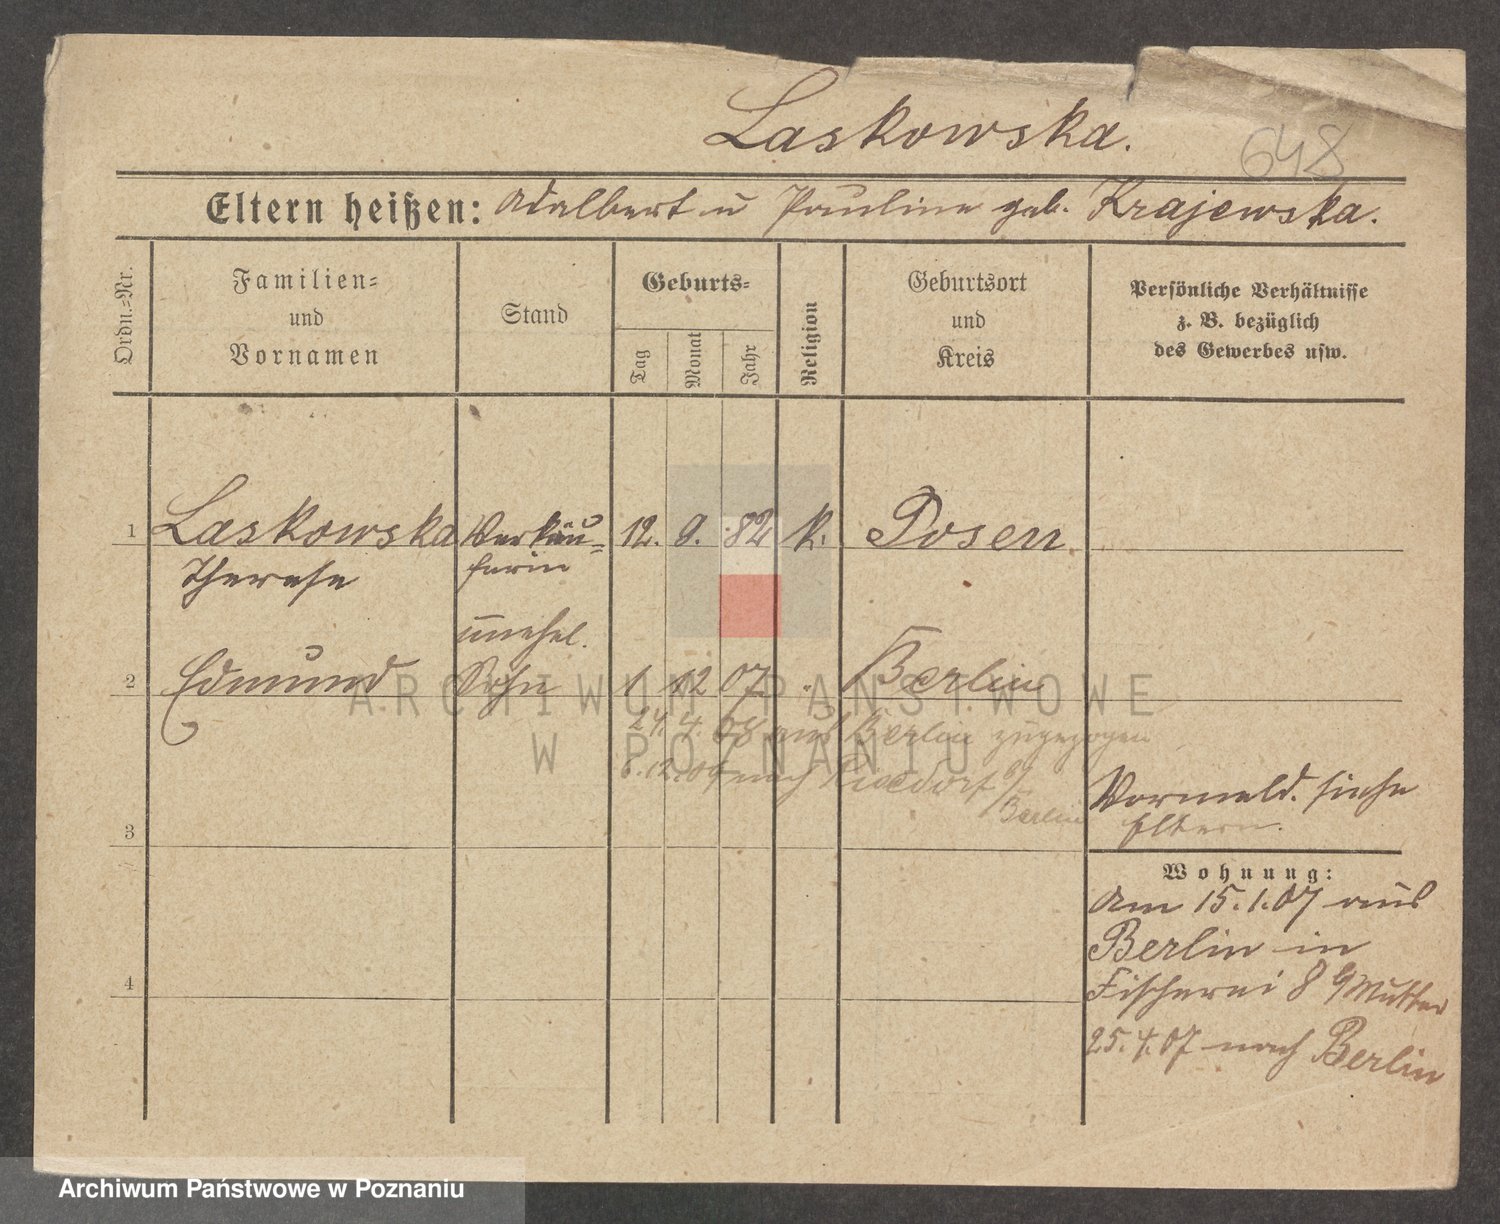 Laskowska.
648
Eltern heißen: Adalbert u Pauline geb. Krajewska.
Ordn.-Nr.
Familien-
und
Vornamen
Stand
Geburts-
Tag
Monat
Jahr
Religion
Geburtsort
und
Kreis
Persönliche Verhältnisse
z. B. bezüglich
des Gewerbes usw.
1 Laskowska Verkäu- 12. 9. 82 k. Posen
Therese ferin
unehel.
2 Edmund Sohn 1 12 07 " Berlin
24. 4. 08 aus Berlin zugezogen
8. 12. nach Rixdorf b/
Berlin
Vormeld. siehe
Eltern.
3
Wohnung:
Am 15.1.07 aus
Berlin in
Fischerei 8 b/Mutter
4
25.4.07 nach Berlin
ARCHIWUM PAŃSTWOWE
W POZNANIU
Archiwum Państwowe w Poznaniu